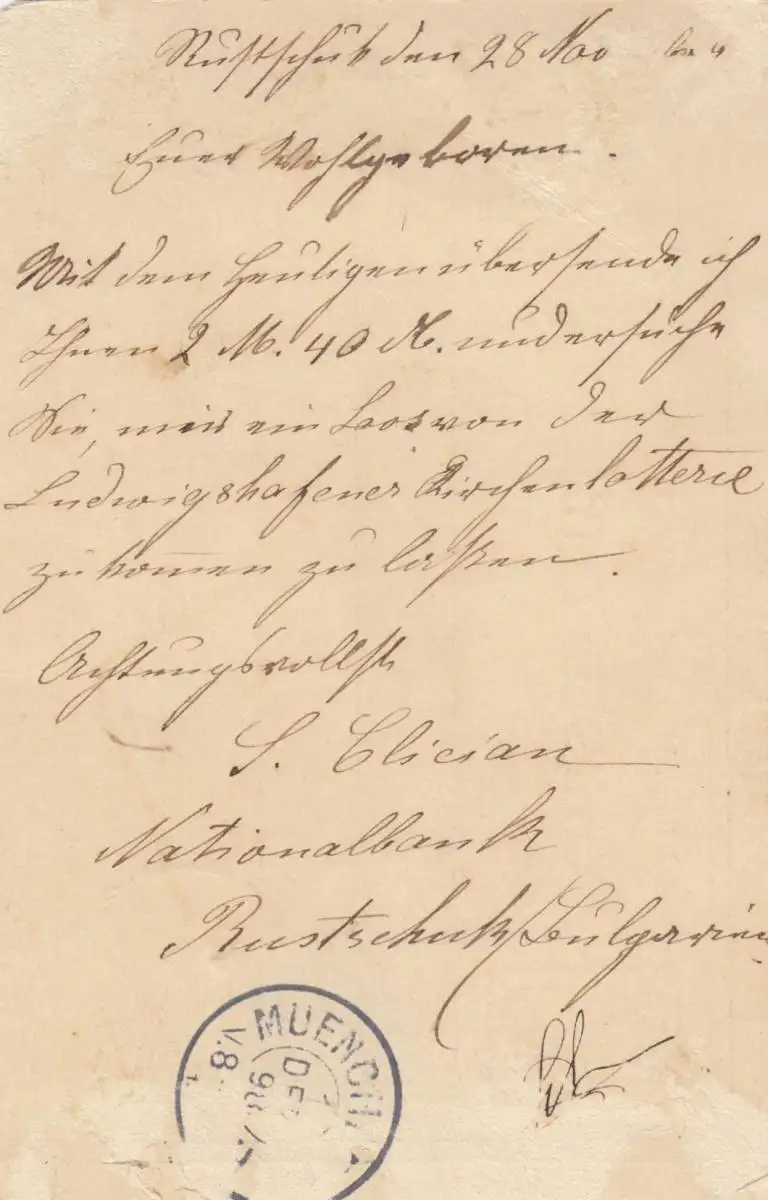 Rustschuk den 28 Nov
Euer Wohlgeboren.
Mit dem Heutigen übersende ich
Ihnen 2 M. 40 und ersuche
Sie, mir ein Los von der
Ludwigshafener Kirchenlotterie
zukommen zu laßen.
Achtungsvollst
S. Elieian
Nationalbank
Rustschuk/Bulgarien
MUENCH
V.8
DE
90